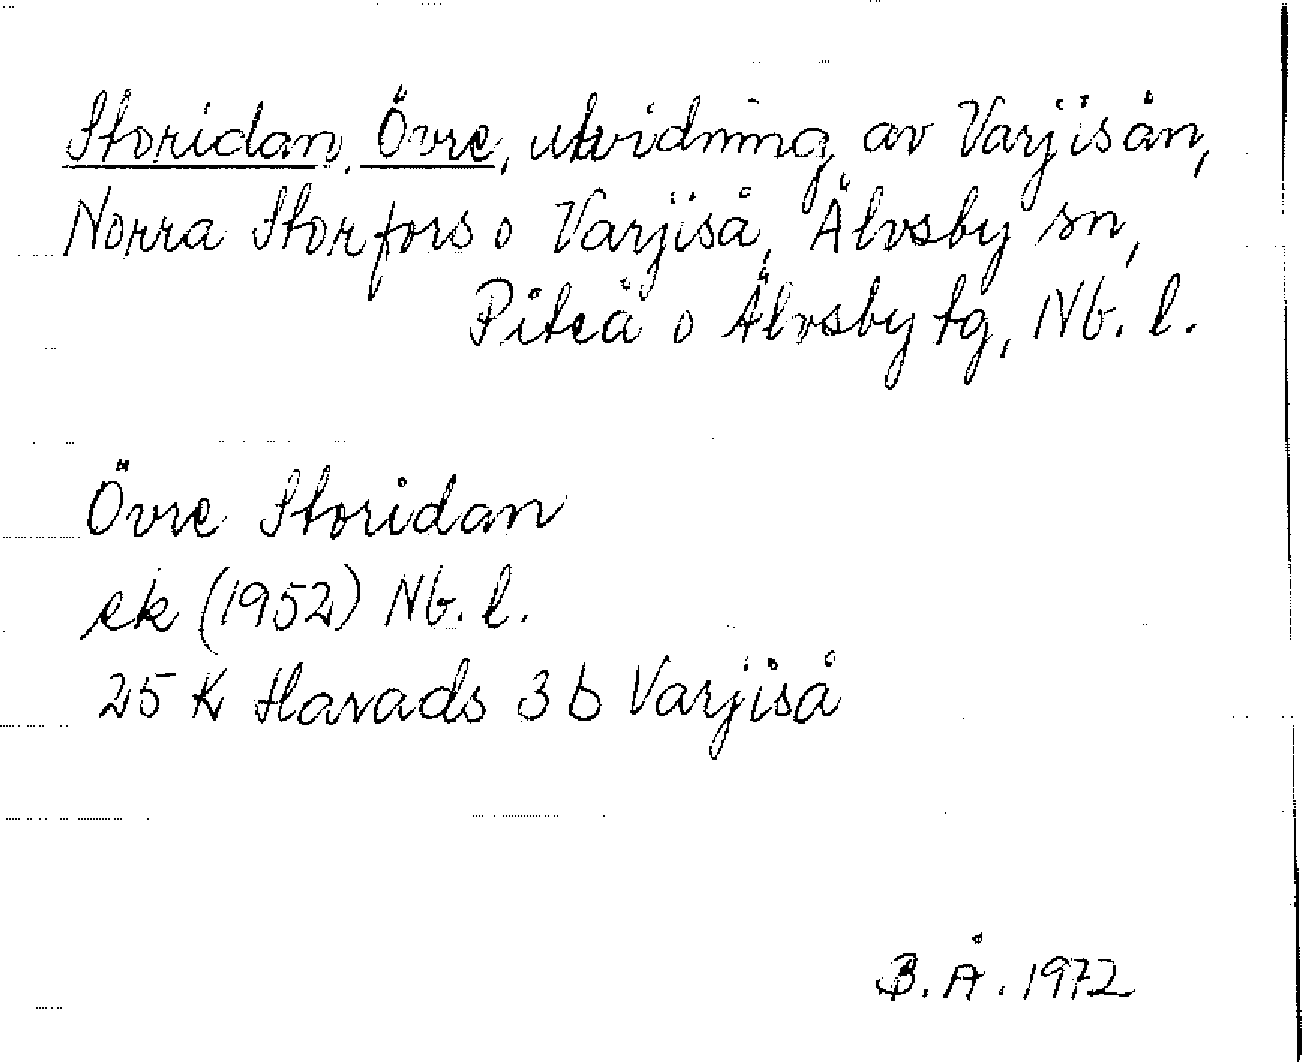 Storidan, Övre, utvidning av Varjisån,
Norra Storfors o Varjiså, Älvsby sn,
Piteå o Älvsby tg, Nb. l.
Övre Storidan
ek (1952) Nb. l.
25 K Harads 3 b Varjiså
B. Å. 1972